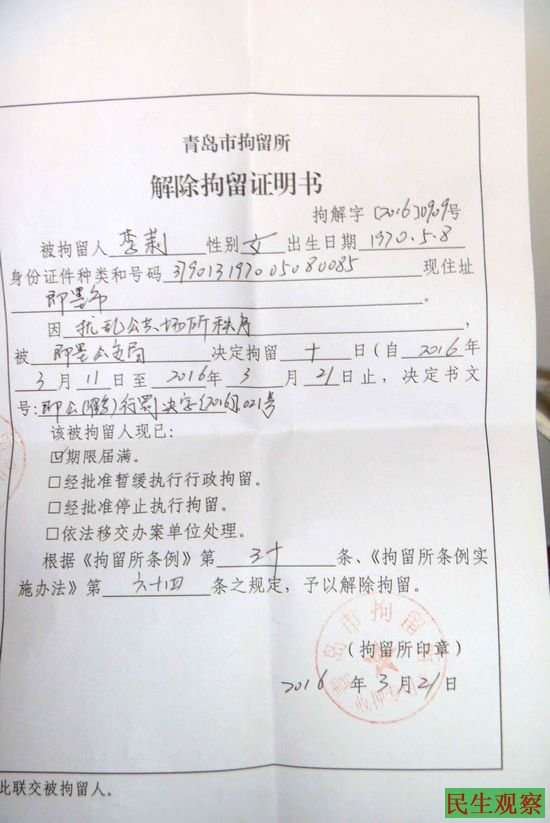 青岛市拘留所
解除拘留证明书
拘解字〔2016〕0909号
被拘留人 李莉 性别 女 出生日期 1970.5.8
身份证件种类和号码 379013197005080085 现住址
即墨市。
因 扰乱公共场所秩序,
被 即墨公安局 决定拘留 十 日(自 2016 年
3 月 11 日至 2016 年 3 月 21 日止,决定书文
号: 行罚决字〔2016〕 021号
该被拘留人现已:
☑期限届满。
□经批准暂缓执行行政拘留。
□经批准停止执行拘留。
□依法移交办案单位处理。
根据《拘留所条例》第 三十 条、《拘留所条例实
施办法》第 六十四 条之规定,予以解除拘留。
青岛市拘留
(拘留所印章)
2016 年 3 月 21 日
此联交被拘留人。
民生观察